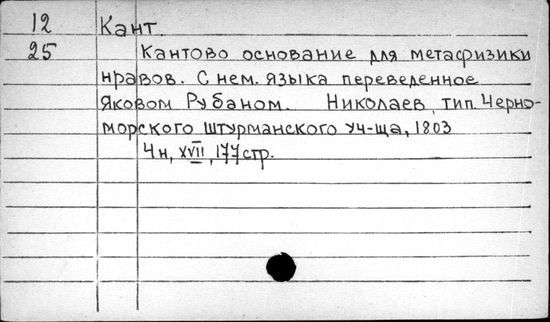 12 Кант.
25 Кантово основание для метафизики
нравов. С нем. языка переведенное
Яковом Рубаном. Николаев, тип. Черно-
морского штурманского уч-ща, 1803
4н, XVII, 177стр.